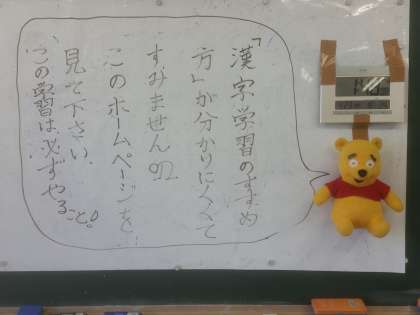 「漢字学習のすすめ
方」が分かりにくくて
すみません。
このホームページを
見て下さい。
この学習は必ずやること。